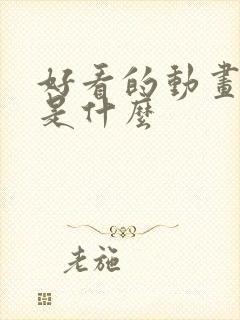 好看的動畫
是什麼
老施